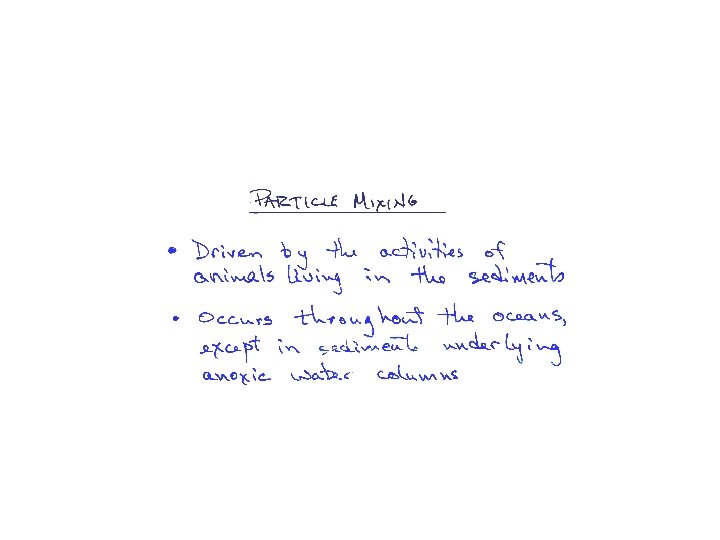 PARTICLE MIXING
• Driven by the activities of
animals living in the sediments
• Occurs throughout the oceans,
except in sediments underlying
anoxic water columns